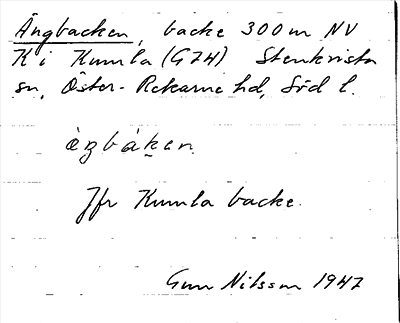 Ängbacken, backe 300 m NV
K i Kumla (G74) Stenkvista
sn, Öster-Rekarne hd, Söd l.
ὰŋbάk̬en
Jfr Kumla backe.
Gun Nilsson 1947